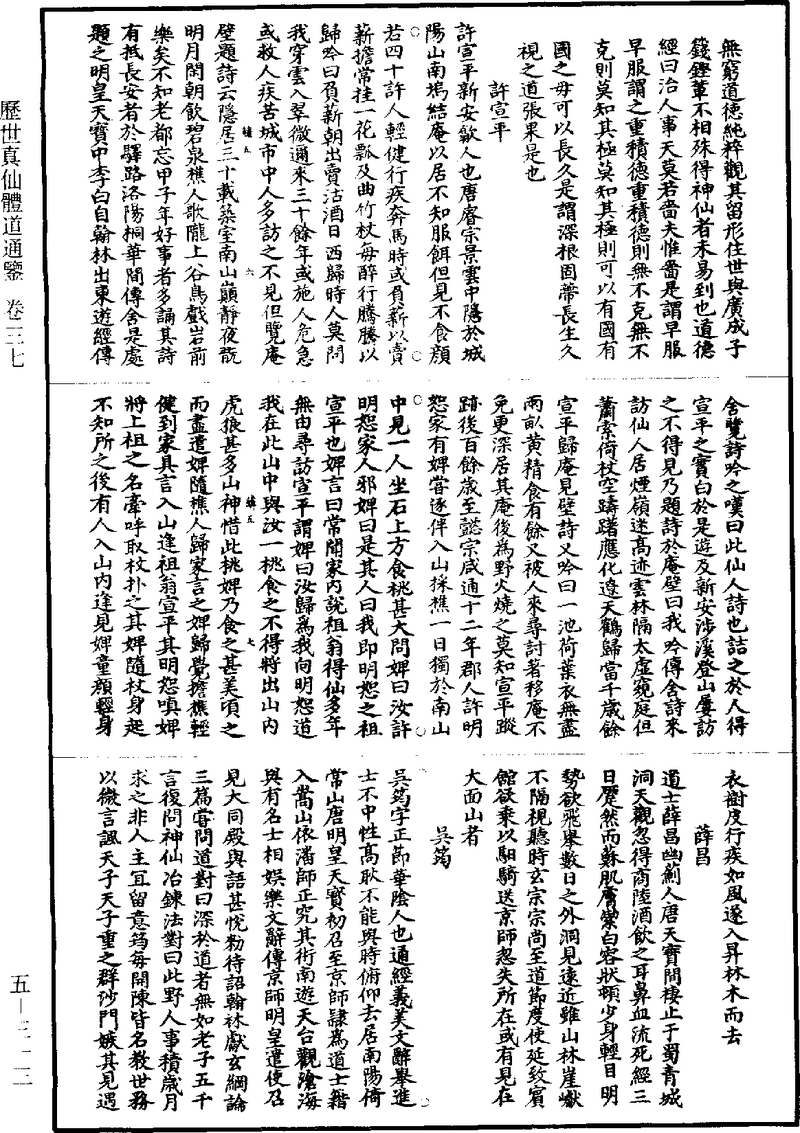 無窮道德純粹觀其留形住世與廣成子
籛鏗輩不相殊得神仙者未易到也道德
經曰治人事天莫若嗇夫惟嗇是謂早服
早服謂之重積德重積德則無不克無不
克則莫知其極莫知其極則可以有國有
國之母可以長久是謂深根固蔕長生久
視之道張果是也
許宣平
許宣平新安歙人也唐睿宗景雲中隱於城
陽山南塢結庵以居不知服餌但見不食顔
若四十許人輕健行疾奔馬時或負薪以賣
薪擔常挂一花瓢及曲竹杖每醉行騰騰以
歸吟曰負薪朝出賣沽酒日西歸時人莫問
我穿雲入翠微邇來三十餘年或施人危急
或救人疾苦城市中人多訪之不見但覽庵
壁題詩云隱居三十載築室南山巔靜夜翫
明月閑朝飲碧泉樵人歌隴上谷鳥戲岩前
樂矣不知老都忘甲子年好事者多誦其詩
有抵長安者於驛路洛陽桐華間傳舍是處
題之明皇天寶中李白自翰林出東遊經傳
舍覽詩吟之嘆曰此仙人詩也詰之於人得
宣平之實白於是遊及新安涉溪登山屢訪
之不得見乃題詩於庵壁曰我吟傳舍詩來
訪仙人居煙嶺迷高迹雲林隔太虛窺庭但
蕭索倚杖空躊躇應化遼天鶴歸當千歲餘
宣平歸庵見壁詩又吟曰一池荷葉衣無盡
兩畝黃精食有餘又被人來尋討著移庵不
免更深居其庵後為野火燒之莫知宣平蹤
跡後百餘歲至懿宗咸通十二年郡人許明
恕家有婢嘗逐伴入山採樵一日獨於南山
中見一人坐石上方食桃甚大問婢曰汝許
明恕家人邪婢曰是其人曰我即明恕之祖
宣平也婢言曰常聞家內說祖翁得仙多年
無由尋訪宣平謂婢曰汝歸為我向明恕道
我在此山中與汝一桃食之不得將出山內
虎狼甚多山神惜此桃婢乃食之甚美頃之
而盡遣婢隨樵人歸家言之婢歸覺擔樵輕
健到家具言入山逢祖翁宣平其明恕嗔婢
將上祖之名牽呼取杖扑之其婢隨杖身起
不知所之後有人入山內逢見婢童顔輕身
衣樹皮行疾如風遂入昇林木而去
薛昌
道士薛昌幽薊人唐天寶間棲止于蜀青城
洞天觀忽得商陸酒飲之耳鼻血流死經三
日蹷然而蘇肌膚縈白容狀頓少身輕目明
勢欲飛舉數日之外洞見遠近雖山林崖巘
不隔視聽時玄宗宗尚至道節度使延致賓
館欲乘以駔騎送京師忽失所在或有見在
大面山者
吳筠
吳筠字正節華陰人也通經義美文辭舉進
士不中性高耿不能與時俯仰去居南陽倚
常山唐明皇天寶初召至京師隷為道士籍
入嵩山依潘師正究其術南遊天台觀滄海
與有名士相娛樂文辭傳京師明皇遣使召
見大同殿與語甚悅勑待詔翰林獻玄綱論
三篇甞問道對曰深於道者無如老子五千
言復問神仙冶鍊法對曰此野人事積歲月
求之非人主宜留意筠每開陳皆名教世務
以微言諷天子天子重之群沙門嫉其見遇
歷世真仙體道通鑒 卷三七
五－三一二